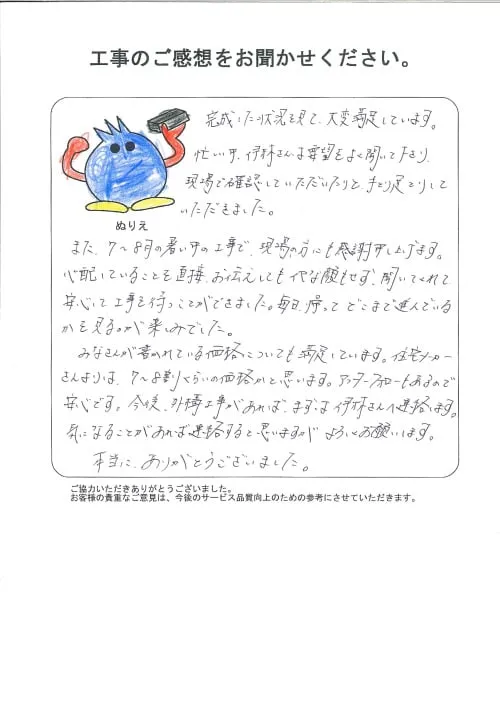 工事のご感想をお聞かせください。
完成した状況を見て、大変満足しています。
忙い中、伊林さんは要望をよく聞いて下さり、
現場で確認していただいたりと、手とり足とりして
いただきました。
ぬりえ
また、7〜8月の暑い中の工事で、現場の方にも感謝申し上げます。
心配していることを直接、お伝えしてもイヤな顔もせず、聞いてくれて
安心して工事を行うことができました。毎日、帰って どこまで進んでいる
かを見るのが楽しみでした。
みなさんが書かれている価格についても満足しています。住宅メーカー
さんよりは、7〜8割くらいの価格かと思います。アフターフォローもあるので
安心です。今後、外構工事があれば、まずは伊林さんへ連絡します。
気になることがあれば連絡すると思いますが よろしくお願いします。
本当に、ありがとうございました。
ご協力いただきありがとうございました。
お客様の貴重なご意見は、今後のサービス品質向上のための参考にさせていただきます。